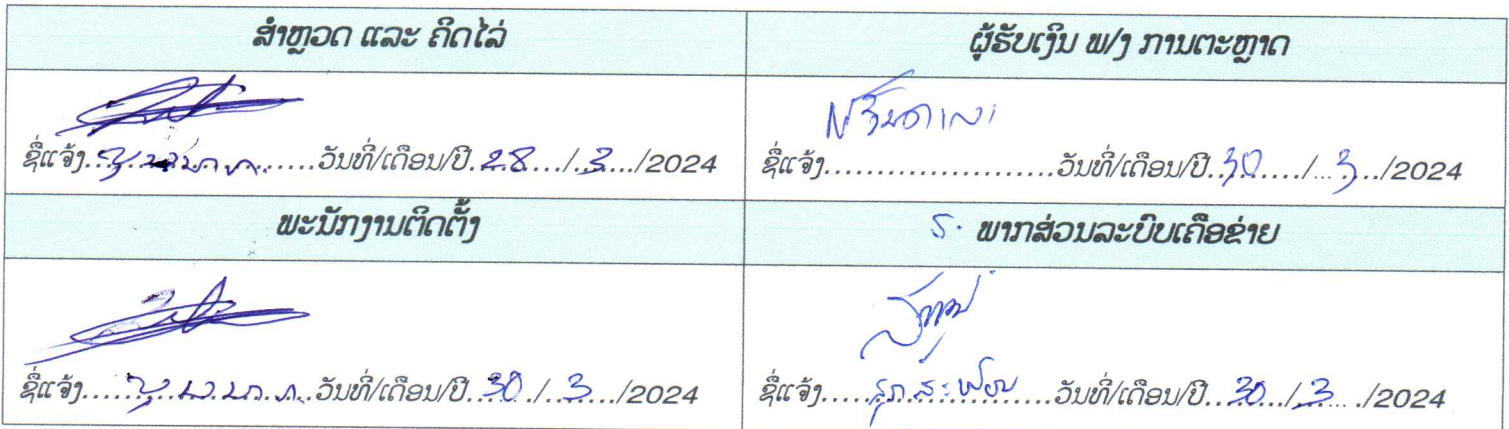 ສຳຫຼວດ ແລະ ຄິດໄລ່
ຜູ້ຮັບເງິນ ພ/ງ ການຕະຫຼາດ
ຊື່ແຈ້ງ.......................ວັນທີ່/ເດືອນ/ປີ.28.../.3.../2024
ຊື່ແຈ້ງ.......................ວັນທີ່/ເດືອນ/ປີ.30..../...3../2024
ພະນັກງານຕິດຕັ້ງ
ພາກສ່ວນລະບົບເຄືອຂ່າຍ
ຊື່ແຈ້ງ.......................ວັນທີ່/ເດືອນ/ປີ..30./..3.../2024
ຊື່ແຈ້ງ.......................ວັນທີ່/ເດືອນ/ປີ..30../.3.../2024